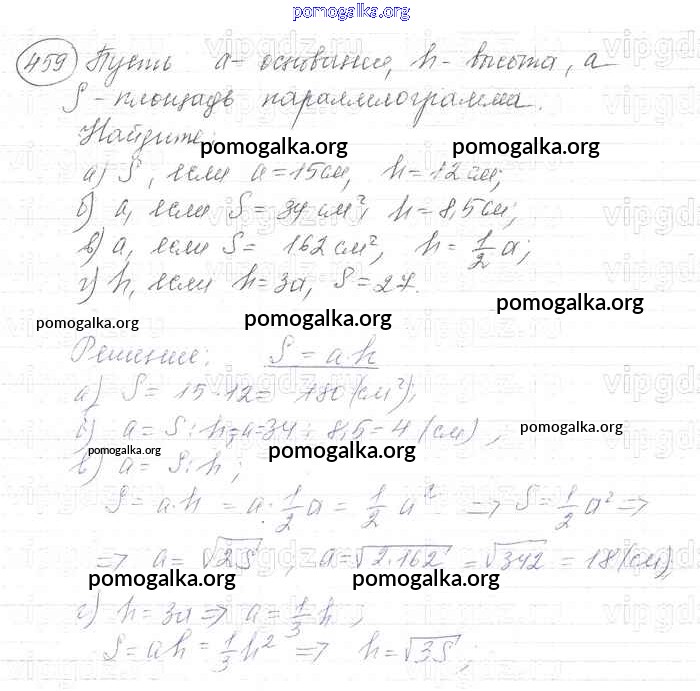 pomogalka.org
459 Пусть a - основание, h - высота, а
S - площадь параллелограмма.
Найдите:
pomogalka.org pomogalka.org
а) S, если a = 15 см, h = 12 см;
б) a, если S = 34 см², h = 8,5 см;
в) a, если S = 162 см², h = 1/2 a;
г) h, если h = 3a, S = 27.
pomogalka.org pomogalka.org pomogalka.org
Решение: S = a·h
а) S = 15·12 = 180 (см²),
б) a = S : h = a = 34 : 8,5 = 4 (см),
pomogalka.org
в) a = S : h;
pomogalka.org pomogalka.org
S = a·h = a·1/2 a = 1/2 a² => S = 1/2 a² =>
=> a = √2S, a = √2·162 = √342 = 18 (см),
pomogalka.org pomogalka.org
г) h = 3a => a = 1/3 h,
S = ah = 1/3 h² => h = √3S;